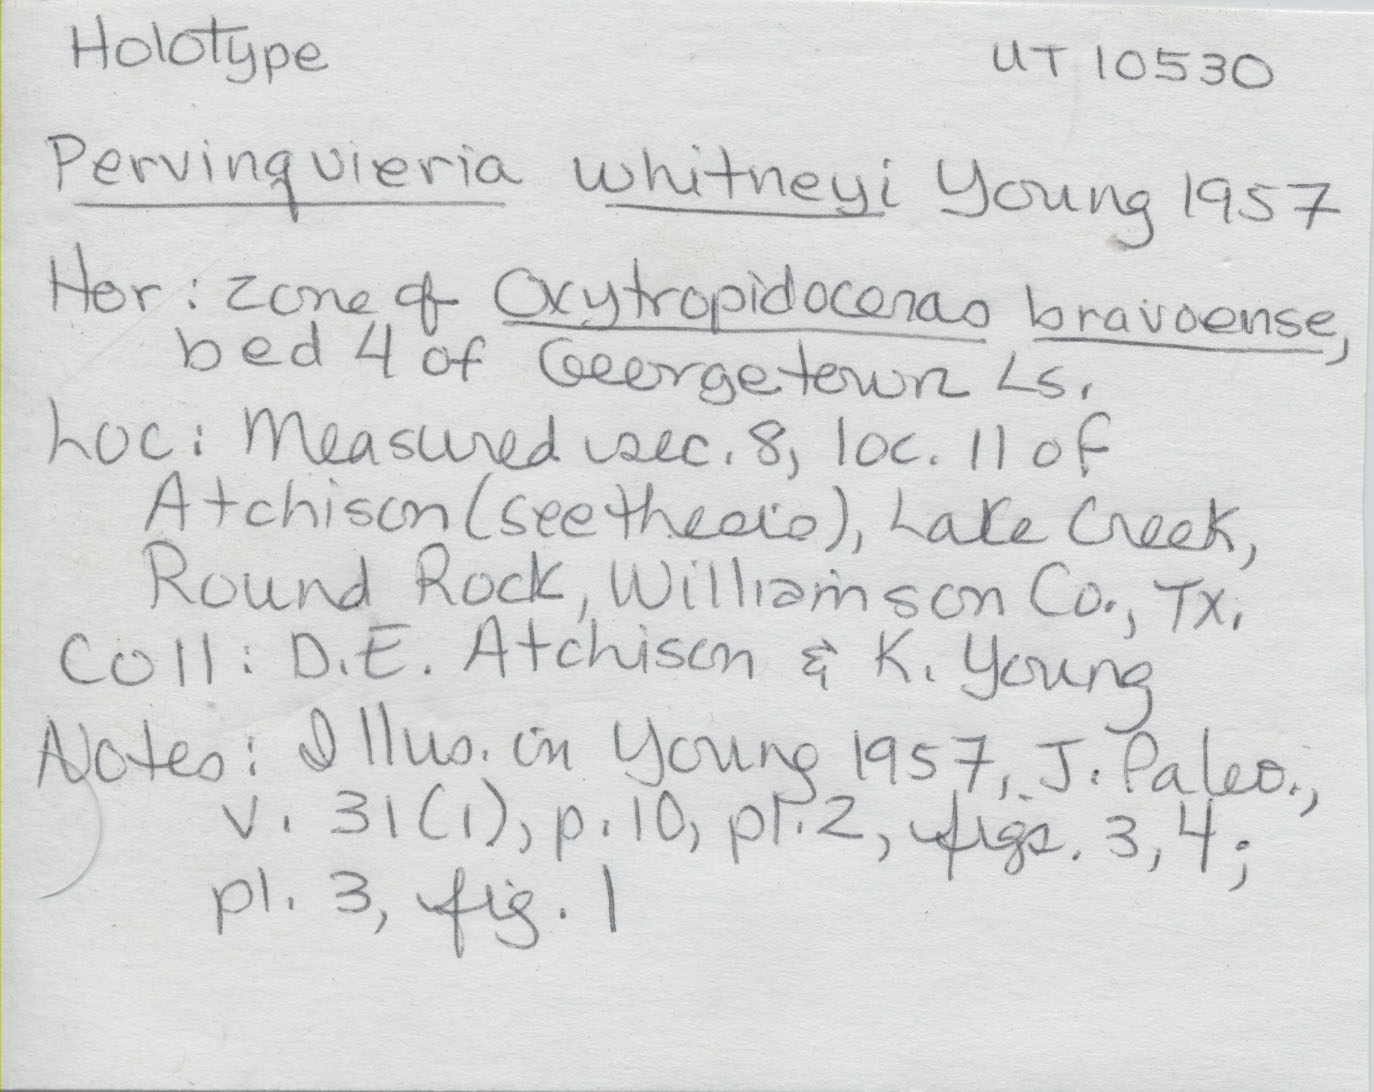 Holotype UT 10530
Pervinquieria whitneyi Young 1957
Hor: zone of Oxytropidoceras bravoense,
bed 4 of Georgetown Ls.
Loc: Measured sec. 8, loc. 11 of
Atchison (see thesis), Lake Creek,
Round Rock, Williamson Co., Tx.
Coll: D.E. Atchison & K. Young
Notes: Illus. in Young 1957, J. Paleo.,
v. 31(1), p. 10, pl. 2, figs. 3, 4;
pl. 3, fig. 1